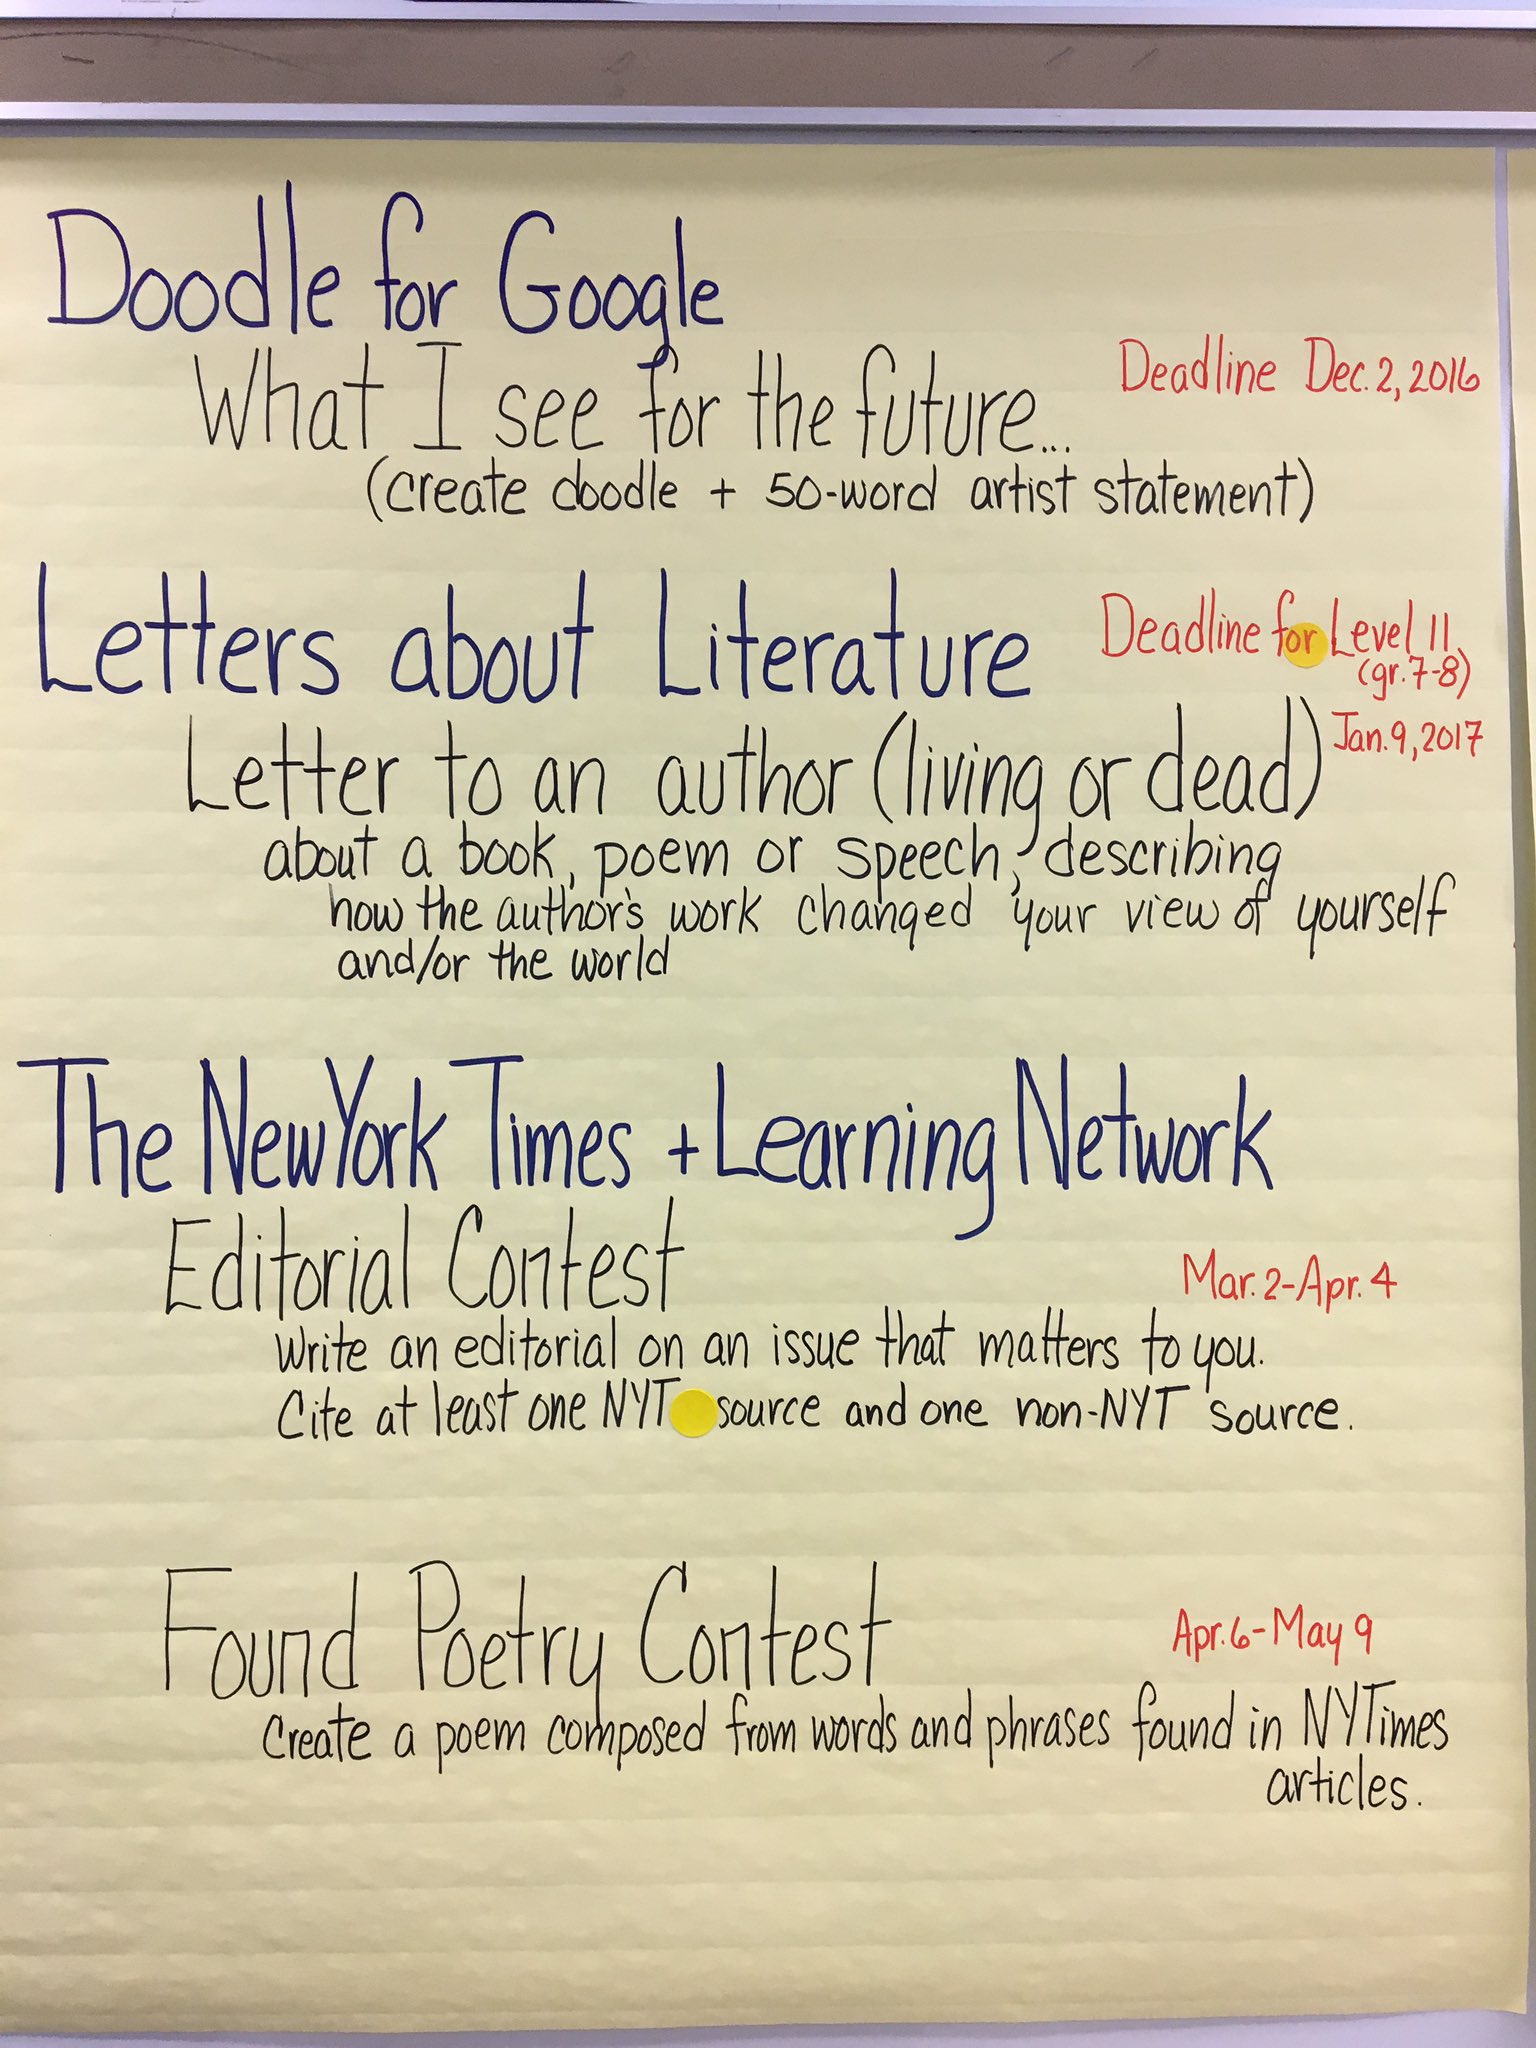 Doodle for Google
What I see for the future...
Deadline Dec. 2, 2016
(create doodle + 50-word artist statement)
Letters about Literature
Deadline for Level II
(gr. 7-8)
Jan. 9, 2017
Letter to an author (living or dead)
about a book, poem or speech, describing
how the author's work changed your view of yourself
and/or the world
The New York Times + Learning Network
Editorial Contest
Mar. 2-Apr. 4
Write an editorial on an issue that matters to you.
Cite at least one NYT source and one non-NYT source.
Found Poetry Contest
Apr. 6-May 9
Create a poem composed from words and phrases found in NYTimes
articles.